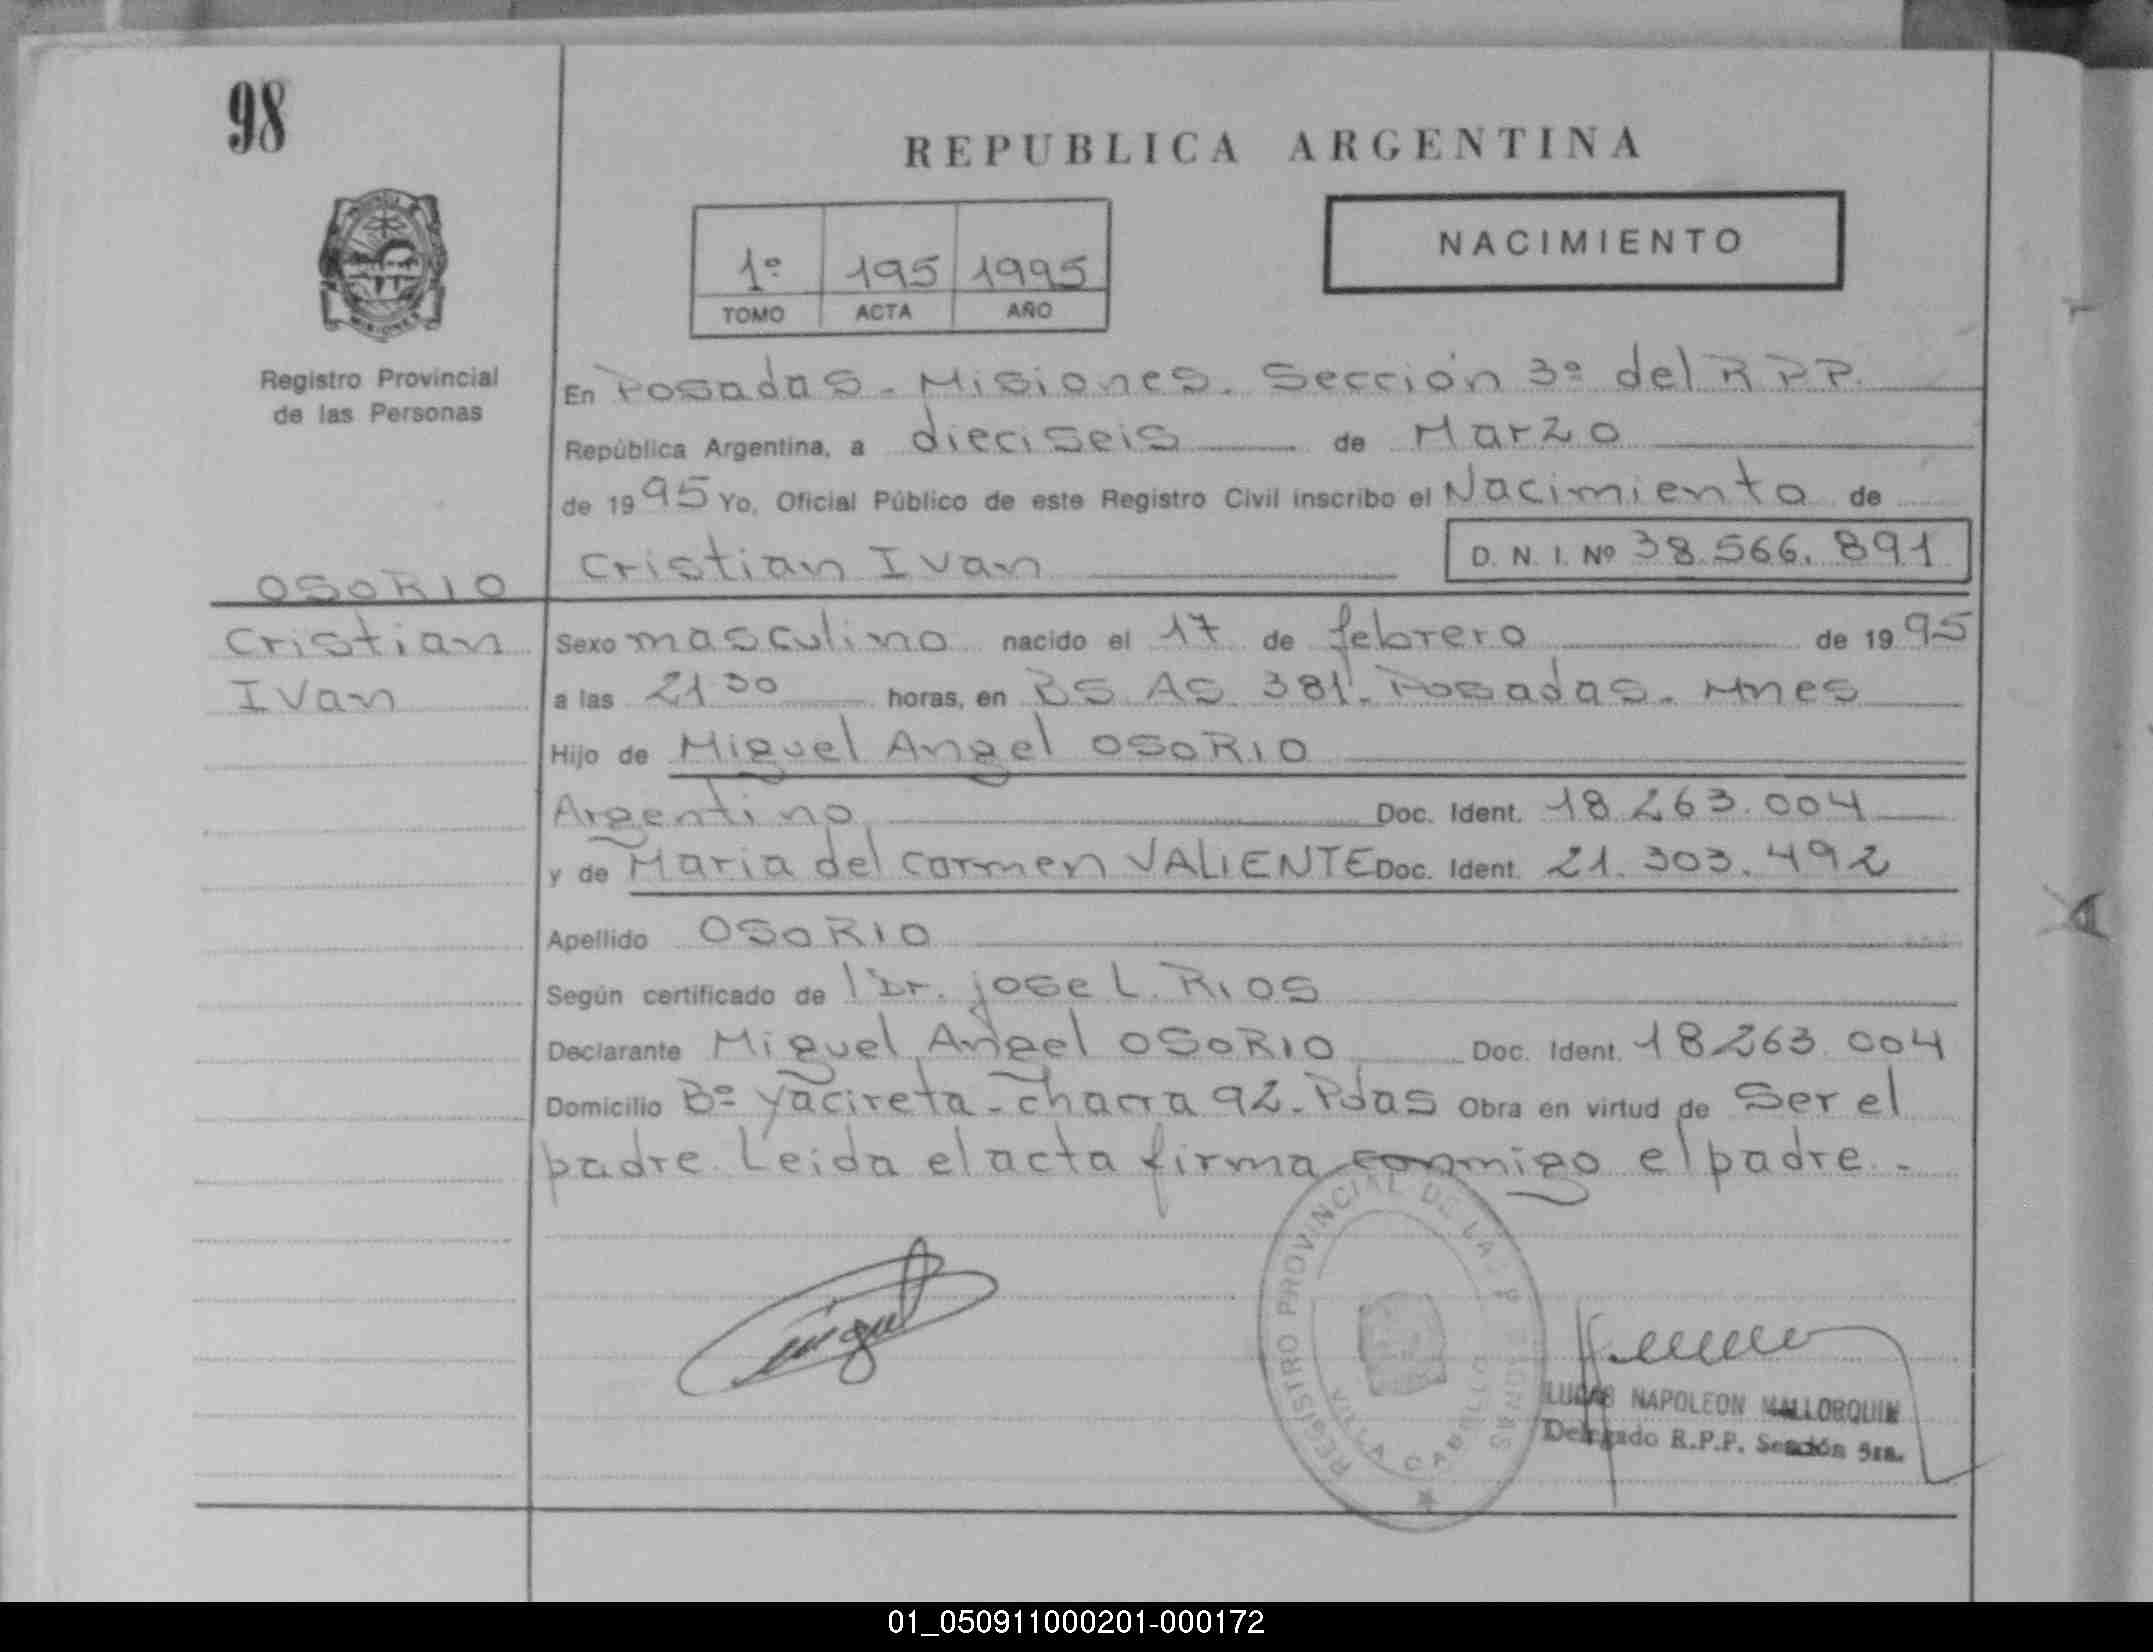 98
REPUBLICA ARGENTINA
NACIMIENTO
1º 195 1995
TOMO ACTA AÑO
MISIONES
Registro Provincial
de las Personas
En Posadas - Misiones. Sección 3º del R P P.
República Argentina, a dieciseis de Marzo
de 1995 Yo, Oficial Público de este Registro Civil inscribo el Nacimiento de
Cristian Ivan D. N. I. Nº 38.566.891
OSORIO
Cristian
Ivan
Sexo masculino nacido el 17 de febrero de 1995
a las 21 30 horas, en BS. AS. 381. Posadas. Mnes
Hijo de Miguel Angel OSORIO
Argentino Doc. Ident. 18.263.004
y de Maria del carmen VALIENTE Doc. Ident. 21.303.492
Apellido OSORIO
Según certificado de Dr. jose L. RIOS
Declarante Miguel Angel OSORIO Doc. Ident. 18263.004
Domicilio Bº Yacireta - chacra 92 - Pdas Obra en virtud de Ser el
padre. Leida el acta firma conmigo el padre. -
REGISTRO PROVINCIAL DE LAS PERSONAS
VILLA CABELLO
LUCAS NAPOLEON MALLORQUIN
Delegado R.P.P. Sección 3ra.
01_050911000201-000172